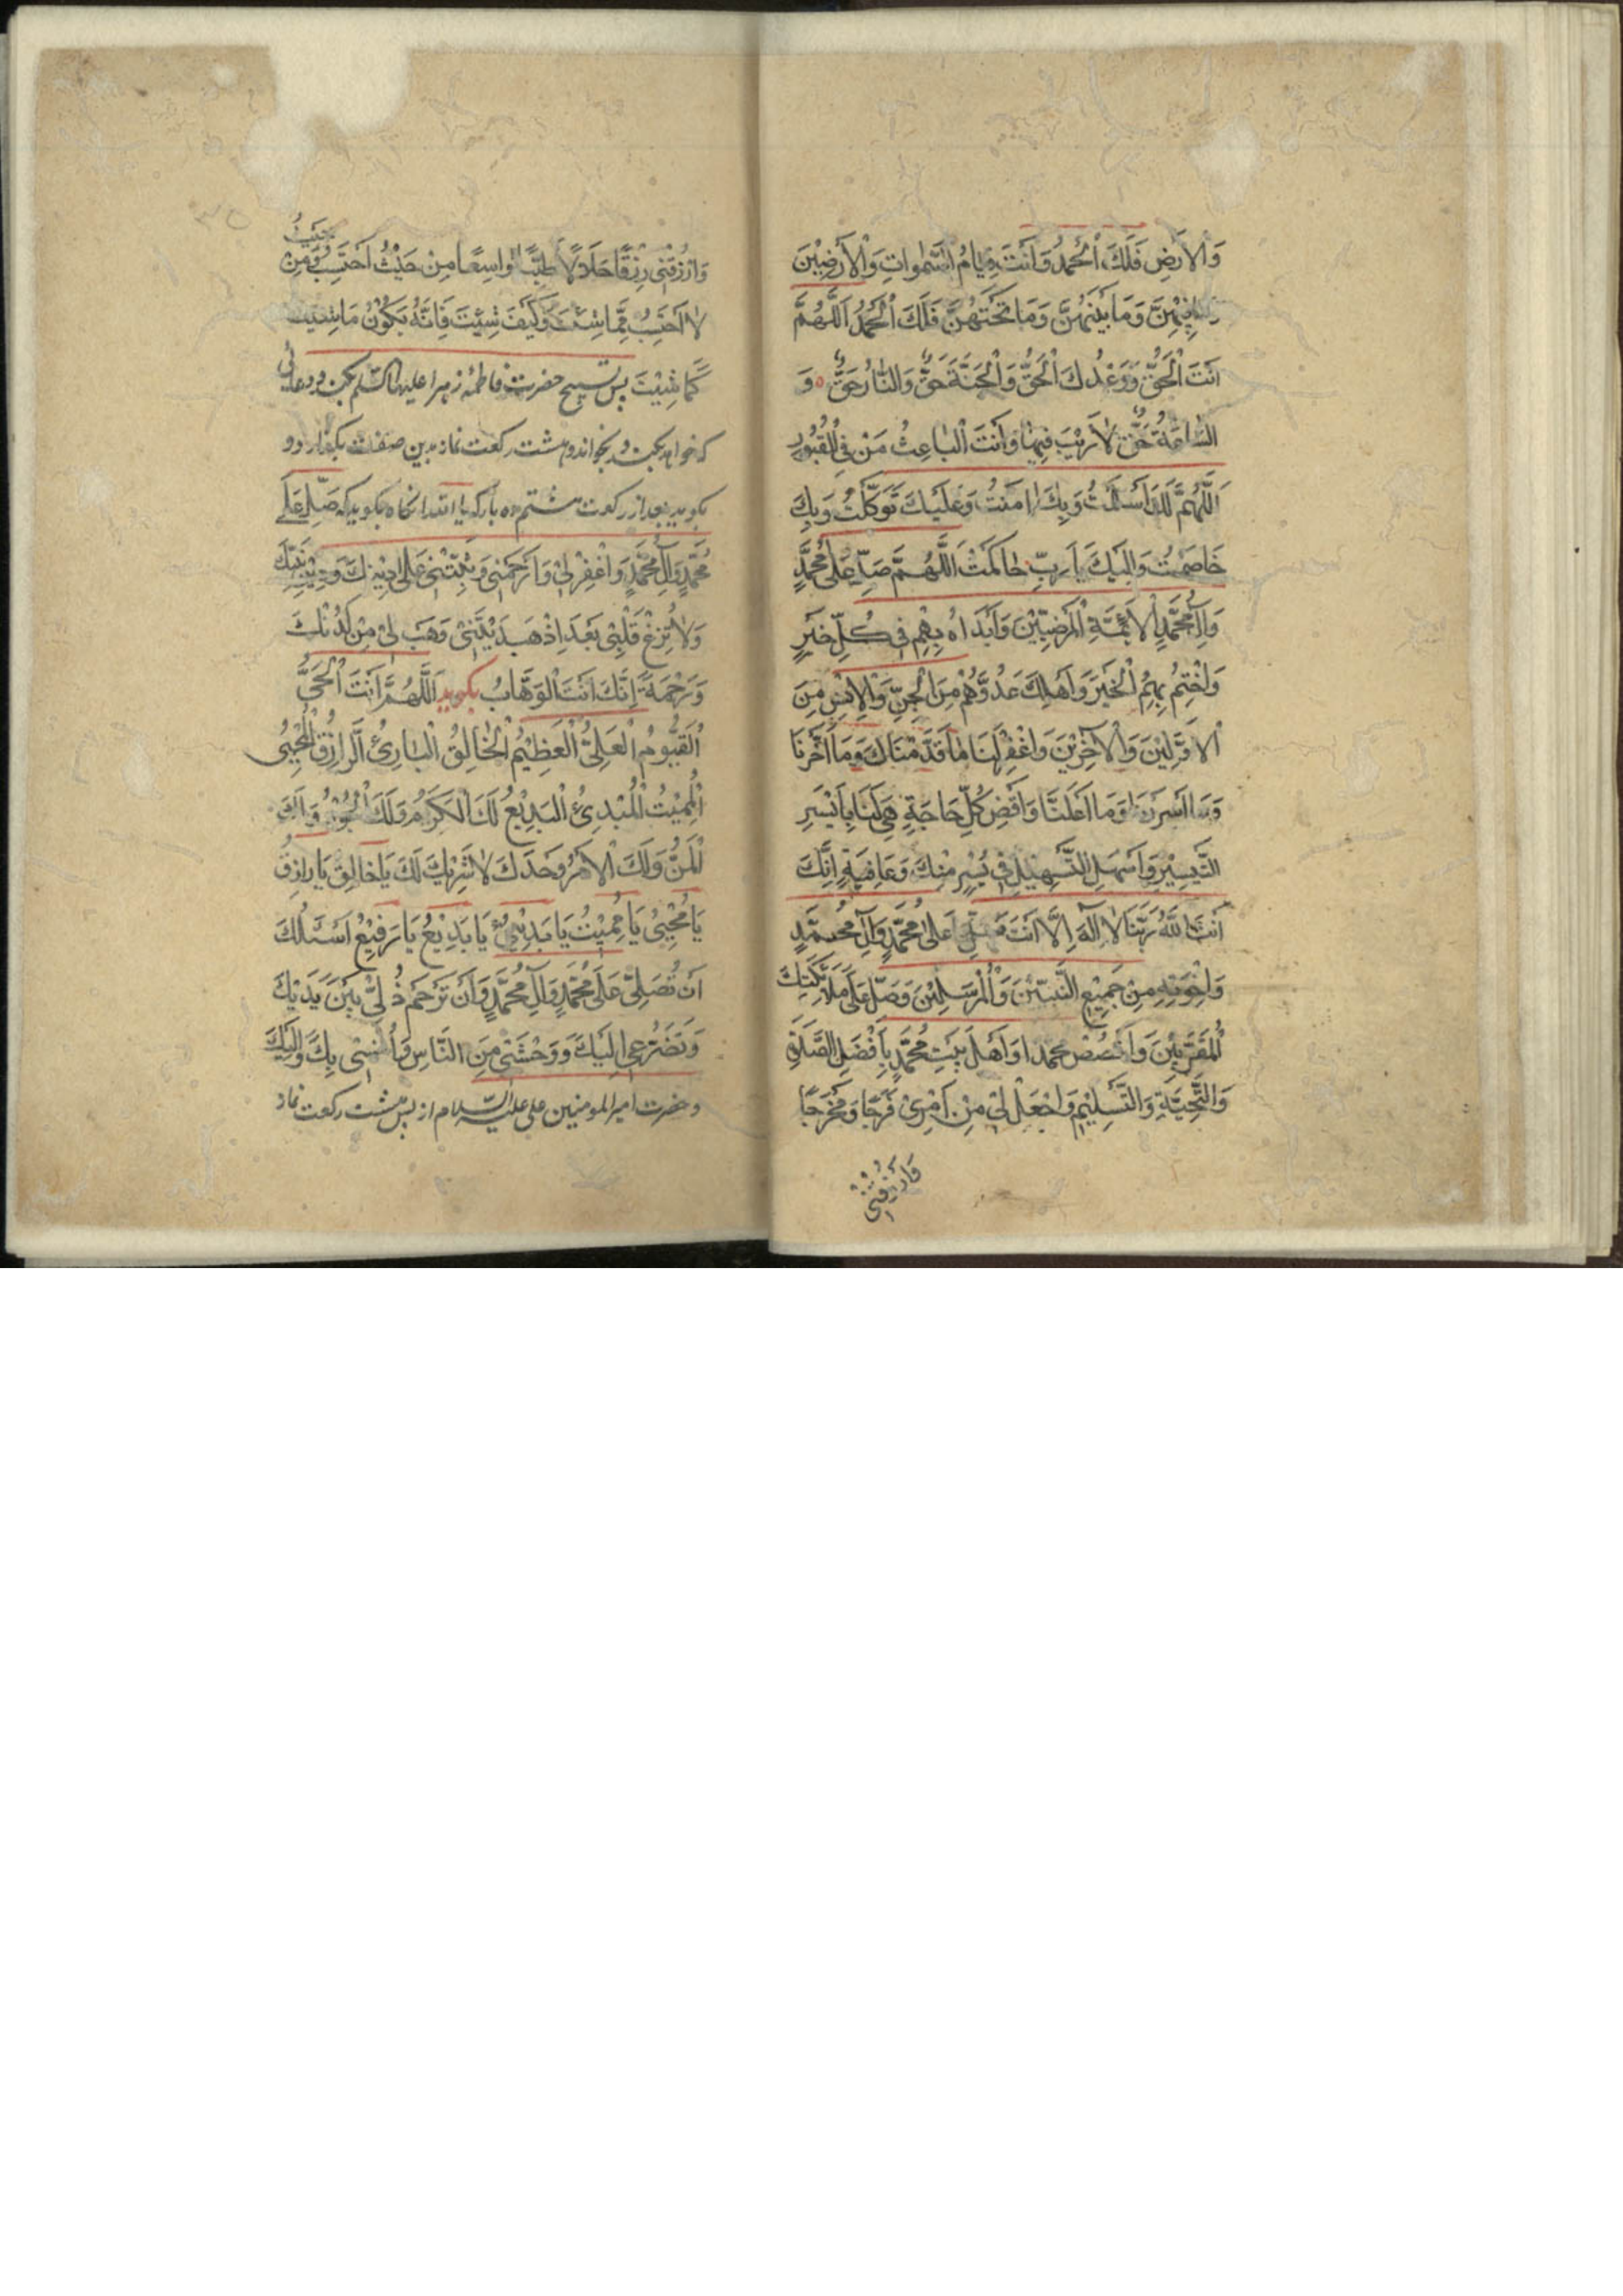 وَالْاَرْضِ فَلَكَ الْحَمْدُ وَاَنْتَ قِيَامُ السَّمٰوَاتِ وَالْاَرْضِيْنَ
فِيْهِنَّ وَمَا بَيْنَهُنَّ وَمَا تَحْتَهُنَّ فَلَكَ الْحَمْدُ اَللّٰهُمَّ
اَنْتَ الْحَقُّ وَوَعْدُكَ الْحَقُّ وَالْجَنَّةُ حَقٌّ وَالنَّارُ حَقٌّ وَ
السَّاعَةُ حَقٌّ لَا رَيْبَ فِيْهَا وَاَنْتَ الْبَاعِثُ مَنْ فِي الْقُبُوْرِ
اَللّٰهُمَّ لَكَ اَسْلَمْتُ وَبِكَ اٰمَنْتُ وَعَلَيْكَ تَوَكَّلْتُ وَبِكَ
خَاصَمْتُ وَاِلَيْكَ يَا رَبِّ حَاكَمْتُ اَللّٰهُمَّ صَلِّ عَلٰى مُحَمَّدٍ
وَاٰلِ مُحَمَّدٍ الْاَئِمَّةِ الْمَرْضِيِّيْنَ وَابْدَاْ بِهِمْ فِي كُلِّ خَيْرٍ
وَاخْتِمْ بِهِمُ الْخَيْرَ وَاَهْلِكْ عَدُوَّهُمْ مِنَ الْجِنِّ وَالْاِنْسِ مِنَ
الْاَوَّلِيْنَ وَالْاٰخِرِيْنَ وَاغْفِرْ لَنَا مَا قَدَّمْنَا وَمَا اَخَّرْنَا
وَمَا اَسْرَرْنَا وَمَا اَعْلَنَّا وَاقْضِ كُلَّ حَاجَةٍ هِيَ لَنَا بِاَيْسَرِ
التَّيْسِيْرِ وَاَسْهَلِ التَّسْهِيْلِ فِي يُسْرٍ مِنْكَ وَعَافِيَةٍ اِنَّكَ
اَنْتَ اللّٰهُ رَبُّنَا لَا اِلٰهَ اِلَّا اَنْتَ صَلِّ عَلٰى مُحَمَّدٍ وَاٰلِ مُحَمَّدٍ
وَاِخْوَتِهِ مِنْ جَمِيْعِ النَّبِيِّيْنَ وَالْمُرْسَلِيْنَ وَصَلِّ عَلٰى مَلَائِكَتِكَ
الْمُقَرَّبِيْنَ وَاخْصُصْ مُحَمَّدًا وَاَهْلَ بَيْتِ مُحَمَّدٍ بِاَفْضَلِ الصَّلٰوةِ
وَالتَّحِيَّةِ وَالتَّسْلِيْمِ وَاجْعَلْ لِيْ مِنْ اَمْرِيْ فَرَجًا وَمَخْرَجًا
وَارْزُقْنِيْ
وَارْزُقْنِيْ رِزْقًا حَلَالًا طَيِّبًا وَاسِعًا مِنْ حَيْثُ اَحْتَسِبُ وَمِنْ حَيْثُ
لَا اَحْتَسِبُ مِمَّا شِئْتَ وَكَيْفَ شِئْتَ فَاِنَّهُ يَكُوْنُ مَا شِئْتَ
كَمَا شِئْتَ پس تسبیح حضرت فاطمه زهرا علیها السّلم بکند و دعایی
که خواهد بکند و بخواند و هشت رکعت نماز بدین صفت بگذارد و
بگوید بعد از رکعت هشتم ده بار که یا الله انگاه بگوید که صَلِّ عَلٰى
مُحَمَّدٍ وَاٰلِ مُحَمَّدٍ وَاغْفِرْ لِيْ وَارْحَمْنِيْ وَثَبِّتْنِيْ عَلٰى دِيْنِكَ وَدِيْنِ نَبِيِّكَ
وَلَا تُزِغْ قَلْبِيْ بَعْدَ اِذْ هَدَيْتَنِيْ وَهَبْ لِيْ مِنْ لَدُنْكَ
رَحْمَةً اِنَّكَ اَنْتَ الْوَهَّابُ بگوید اَللّٰهُمَّ اَنْتَ الْحَيُّ
الْقَيُّوْمُ الْعَلِيُّ الْعَظِيْمُ الْخَالِقُ الْبَارِئُ الرَّازِقُ الْمُحْيِيْ
الْمُمِيْتُ الْمُبْدِئُ الْبَدِيْعُ لَكَ الْكَرَمُ وَلَكَ الْجُوْدُ وَلَكَ
الْمَنُّ وَلَكَ الْاَمْرُ وَحْدَكَ لَا شَرِيْكَ لَكَ يَا خَالِقُ يَا رَازِقُ
يَا مُحْيِيْ يَا مُمِيْتُ يَا مُبْدِئُ يَا بَدِيْعُ يَا رَفِيْعُ اَسْئَلُكَ
اَنْ تُصَلِّيَ عَلٰى مُحَمَّدٍ وَاٰلِ مُحَمَّدٍ وَاَنْ تَرْحَمَ ذُلِّيْ بَيْنَ يَدَيْكَ
وَتَضَرُّعِيْ اِلَيْكَ وَوَحْشَتِيْ مِنَ النَّاسِ وَاُنْسِيْ بِكَ وَاِلَيْكَ
و حضرت امیر المومنین علی علیه السّلام از پس هشت رکعت نماز